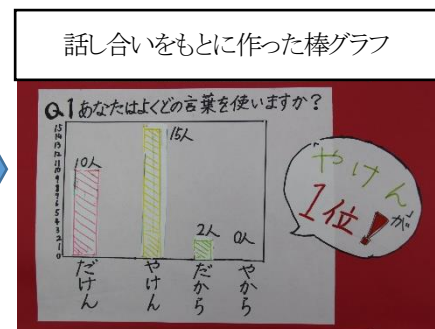 話し合いをもとに作った棒グラフ
Q.1あなたはよくどの言葉を使いますか?
15
14
13
12
11
10
9
8
7
6
5
4
3
2
1
0
10人
15人
2人
0人
だけん
やけん
だから
やから
やけん
1位!が